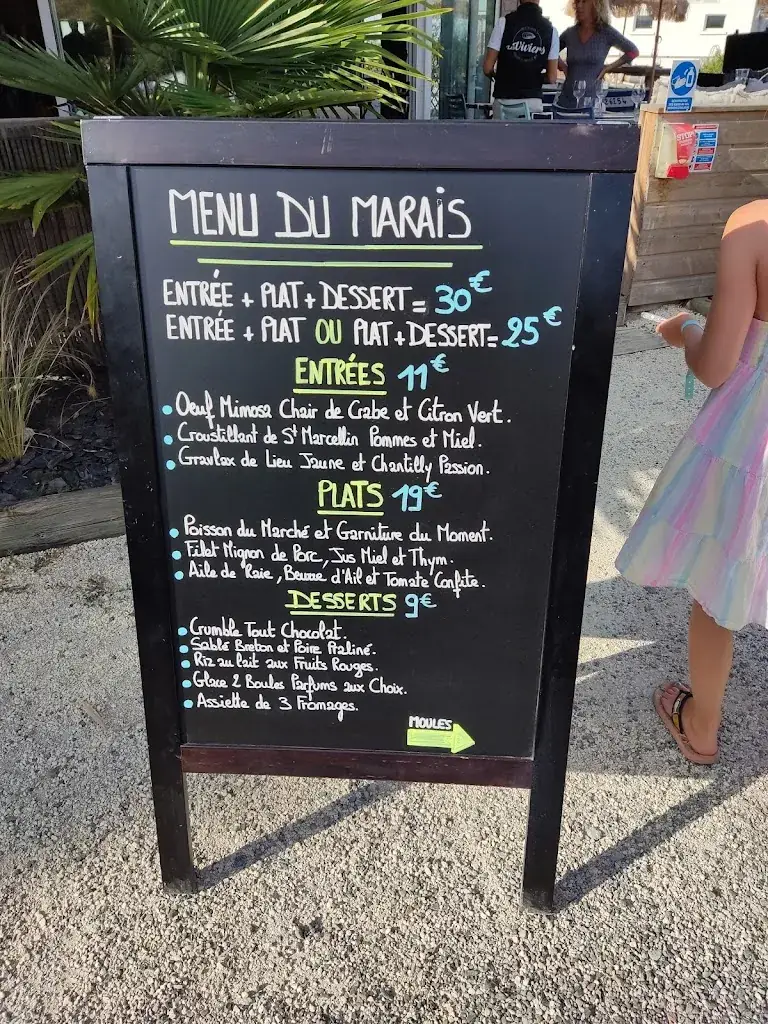 Viviers
MENU DU MARAIS
ENTRÉE + PLAT + DESSERT = 30€
ENTRÉE + PLAT OU PLAT + DESSERT = 25€
ENTRÉES 11€
• Oeuf Mimosa Chair de Crabe et Citron Vert.
• Croustillant de St Marcellin Pommes et Miel.
• Gravlax de Lieu Jaune et Chantilly Passion.
PLATS 19€
• Poisson du Marché et Garniture du Moment.
• Filet Mignon de Porc, Jus Miel et Thym.
• Aile de Raie, Beurre d'Ail et Tomate Confite.
DESSERTS 9€
• Crumble Tout Chocolat.
• Sablé Breton et Poire Praliné.
• Riz au lait aux Fruits Rouges.
• Glace 2 Boules Parfums aux Choix.
• Assiette de 3 Fromages.
MOULES